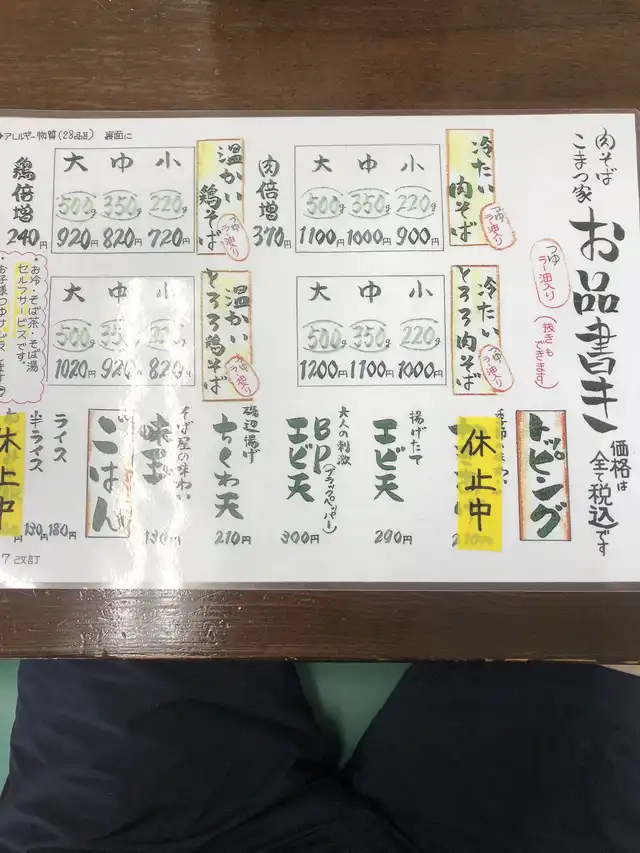 肉そば
こまつ家
お品書き
価格は
全て税込です
つゆ
ラー油入り
(抜きも
できます)
冷たい
肉そば
つゆ
ラー油入り
大 中 小
500g 350g 220g
1100円 1000円 900円
肉倍増
370円
温かい
鶏そば
つゆ
ラー油入り
大 中 小
500g 350g 220g
920円 820円 720円
鶏倍増
240円
冷たい
とろろ肉そば
つゆ
ラー油入り
大 中 小
500g 350g 220g
1200円 1100円 1000円
温かい
とろろ鶏そば
つゆ
ラー油入り
大 中 小
500g 350g
1020円 920円 820円
お冷・そば茶・そば湯
セルフサービスです。
トッピング
休止中
揚げたて
エビ天
290円
大人の刺激
BP(ブラックペッパー)
エビ天
300円
磯辺揚げ
ちくわ天
210円
そば屋の味わい
味玉
130円
ごはん
ライス
180円
半ライス
130円
休止中
アレルギー物質(28品目) 裏面に
7改訂